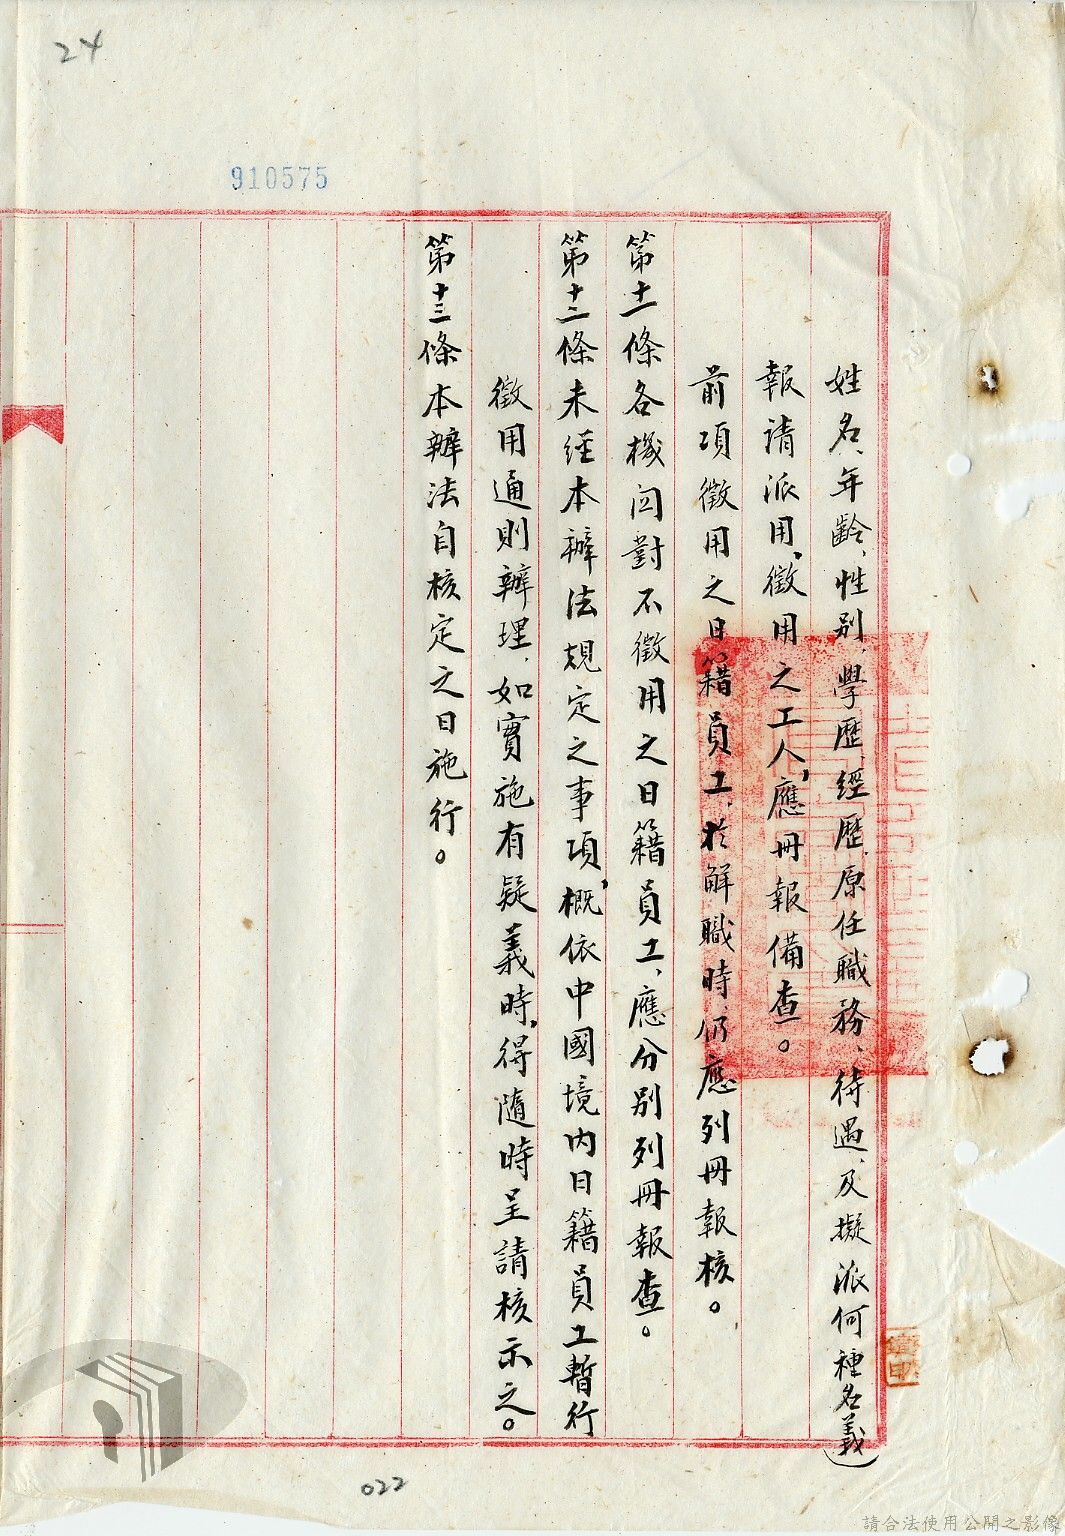 24
910575
姓名、年齡、性別、學歷、經歷、原任職務、待遇、及擬派何種名義)
報請派用,徵用之工人,應冊報備查。
前項徵用之日籍員工,於解職時,仍應列冊報核。
第十一條各機関對不徵用之日籍員工,應分別列冊報查。
第十二條未經本辦法規定之事項,概依中國境內日籍員工暫行
徵用通則辦理,如實施有疑義時,得隨時呈請核示之。
第十三條本辦法自核定之日施行。
022
請合法使用公開之影像